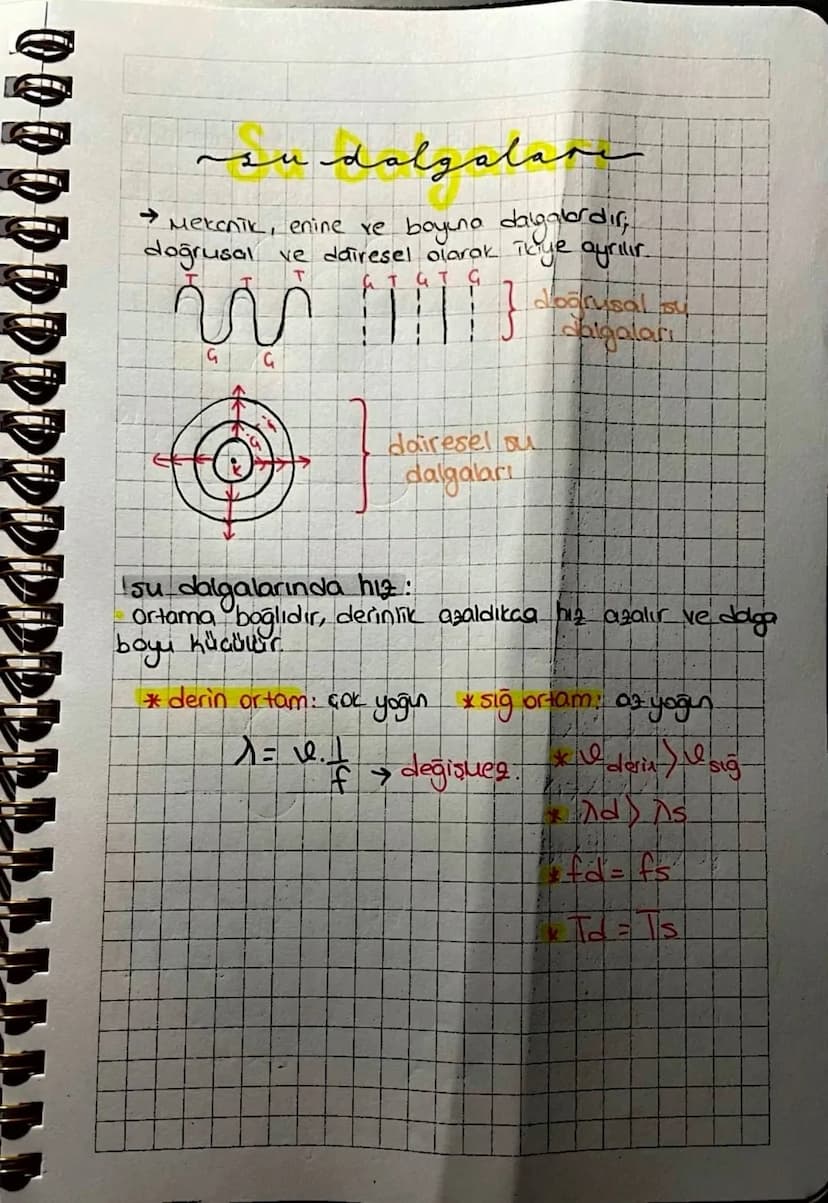 Su Dalgaları
su dalgaları
→ Mekanik, enine ve boyuna dalgalardır;
doğrusal ve dairesel olarak ikiye ayrılır.
T T T G T G T G
G G
doğrusal su
dalgaları
K
dairesel su
dalgaları
!su dalgalarında hız:
• ortama bağlıdır, derinlik azaldıkça hız azalır ve dalga
boyu küçülür.
* derin ortam: çok yoğun * sığ ortam: az yoğun
λ = v. 1/f → değişmez. * v derin > v sığ
* λd > λs
* fd = fs
* Td = Ts